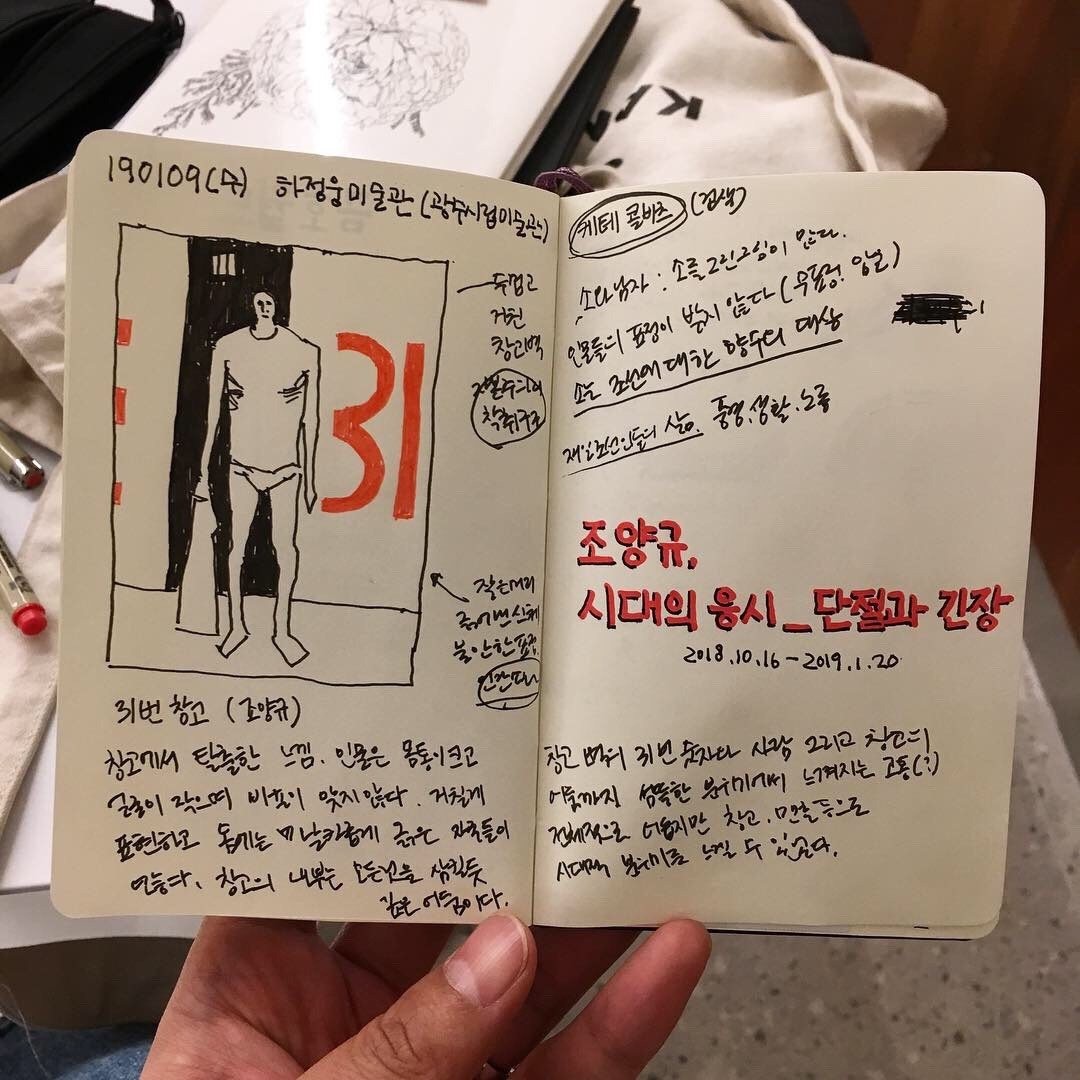 190109(수) 하정웅미술관 (광주시립미술관)
31
두껍고
거친
창고벽
자본주의의
착취구조
짧은머리
죽어버린신체
불안한표정
31번 창고 (조양규)
창고에서 탈출한 느낌. 인물은 몸통이크고
얼굴이 작으며 비율이 맞지않다. 거칠게
표현하고 몸에는 날카롭게 그은 자국들이
창고의 내부는 모든것을 삼킬듯
깊은 어둠이다.
케테 콜비츠 (검색)
소와남자 : 소를그린그림이 많다.
인물들의 표정이 밝지 않다 (무표정. 암울)
소는 조선에대한 향수의 대상
재일조선인들의 삶. 풍경.생활.노동
조양규,
시대의 응시_단절과 긴장
2018.10.16-2019.1.20
창고 번호 31번 숫자와 사람 그리고 창고의
어둠까지 섬뜩한 분위기에서 느껴지는 고통(?)
전체적으로 어둡지만 창고. 맨홀등으로
시대적 분위기를 느낄 수 있었다.